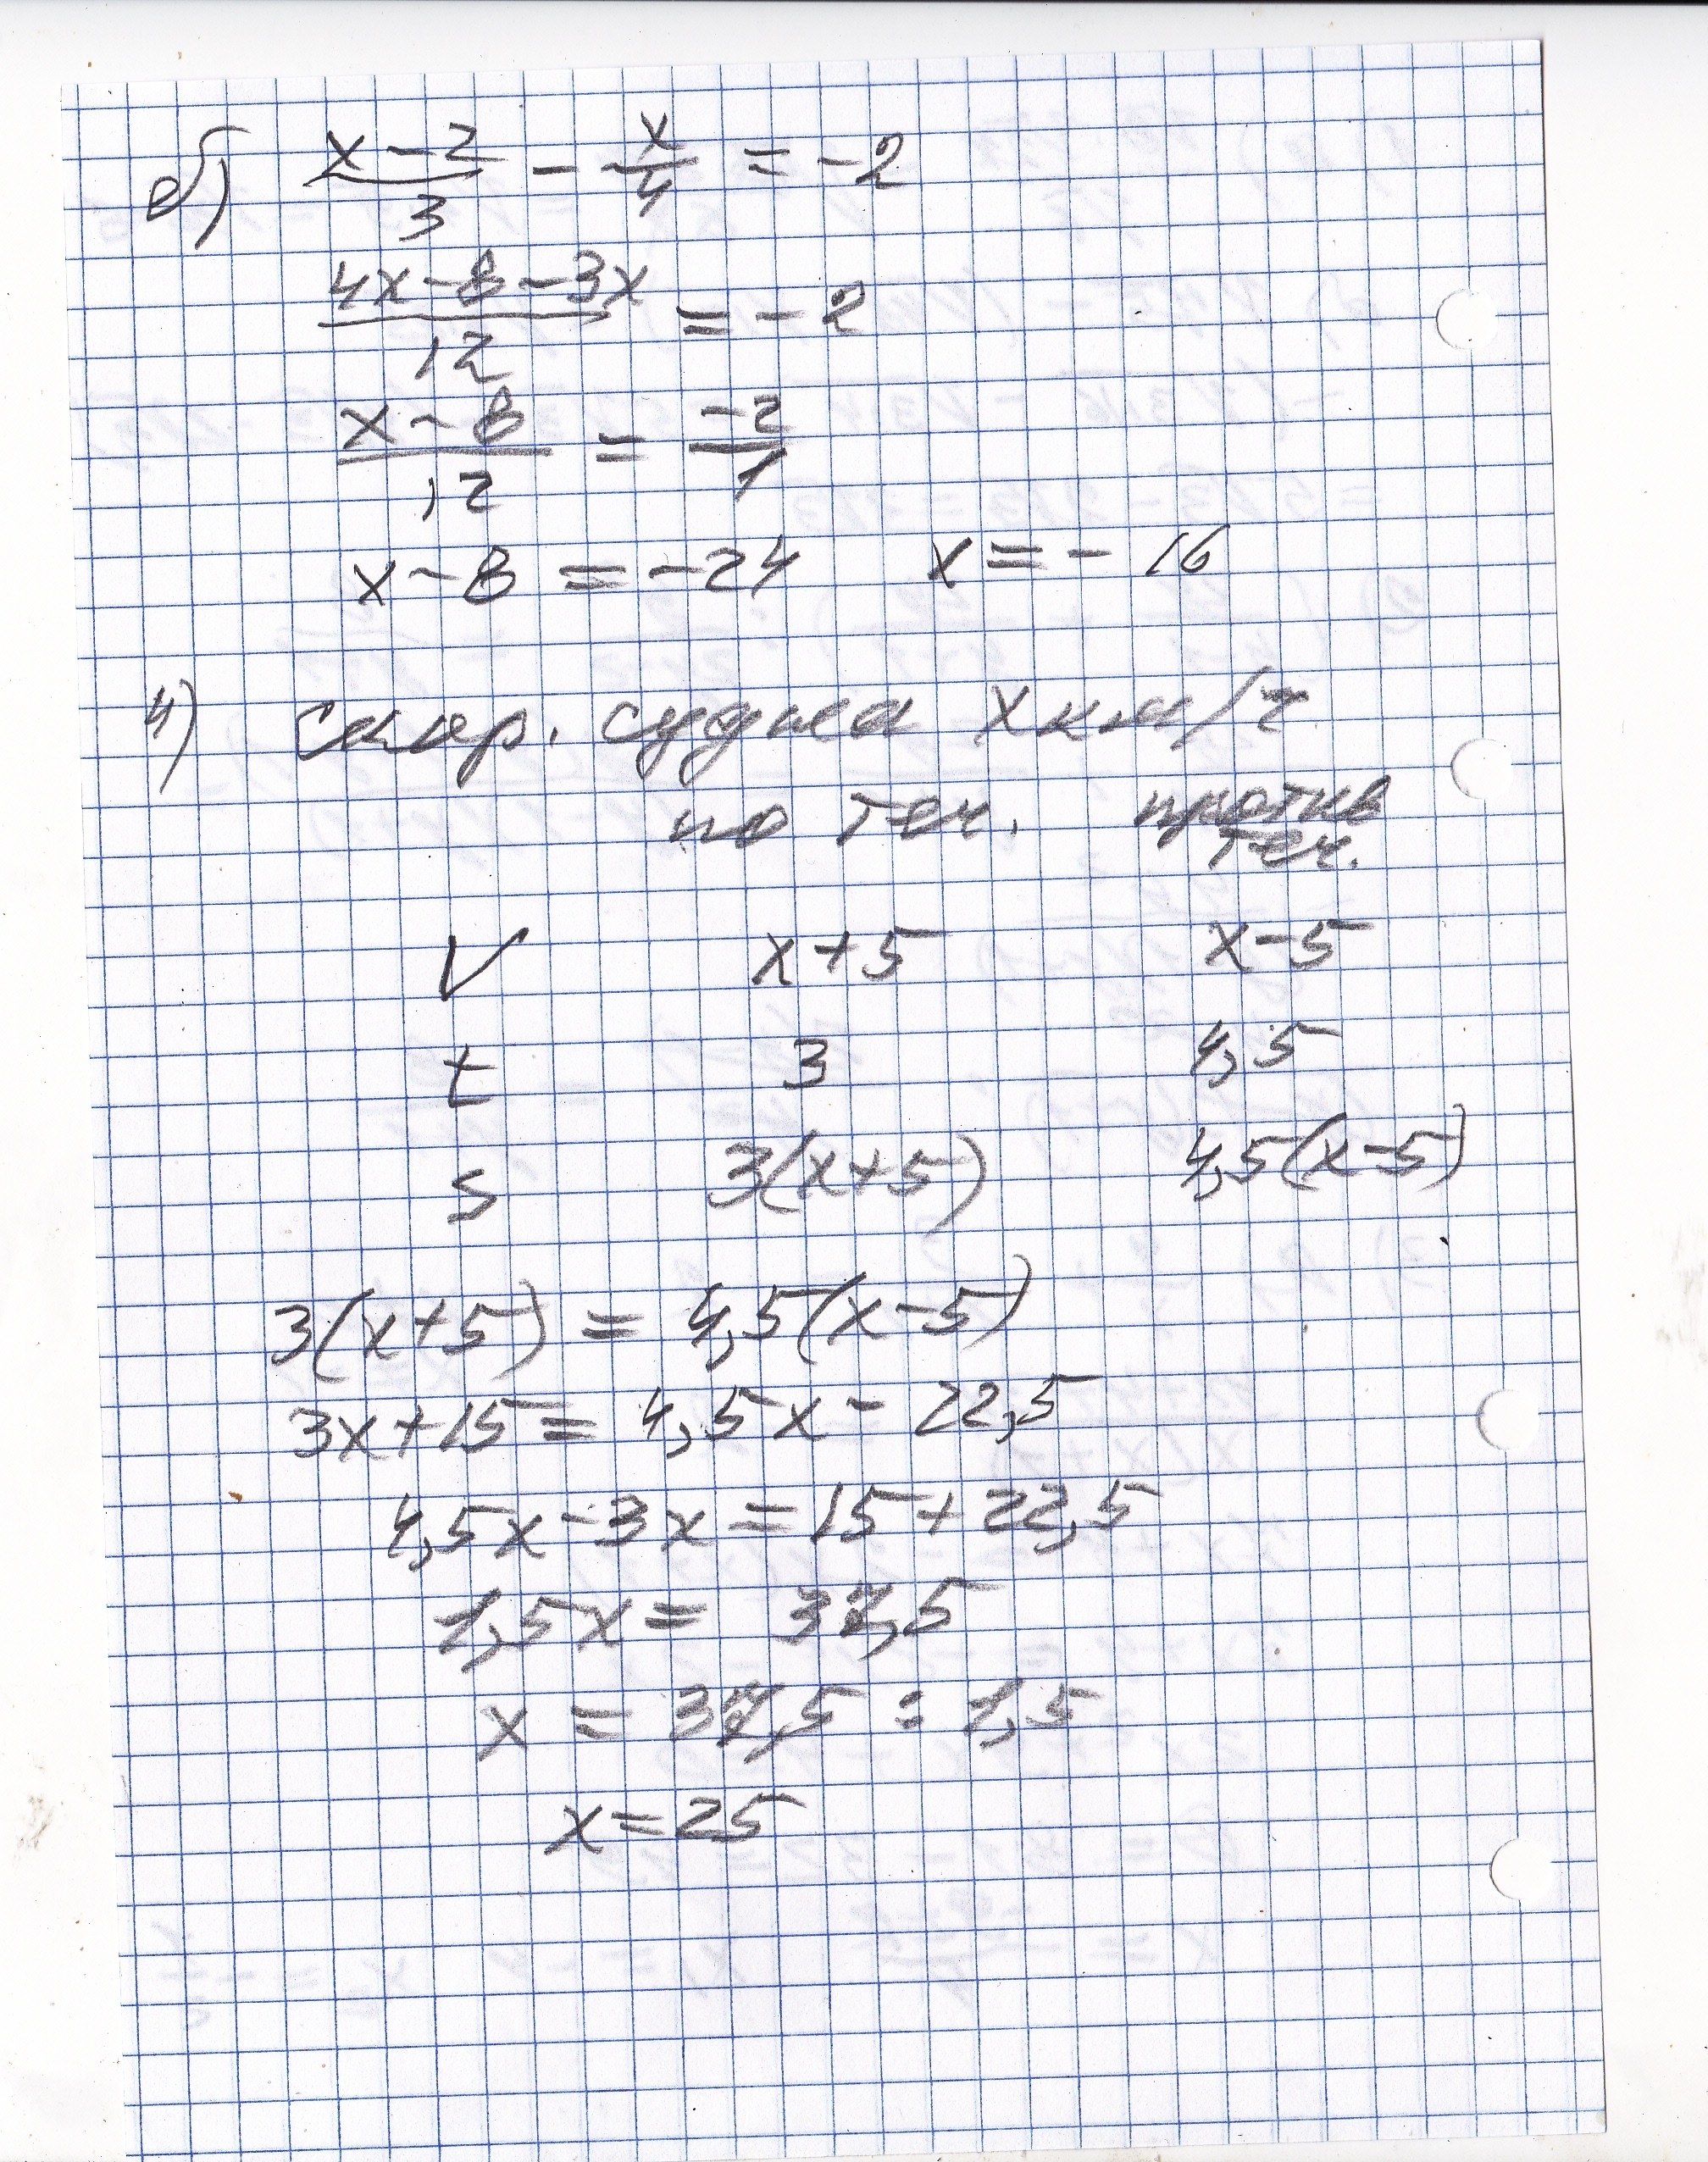 б) (x-2)/3 - x/4 = -2
(4x-8-3x)/12 = -2
(x-8)/12 = -2/1
x-8 = -24 x = -16
4) Скор. судна x км/ч
по теч. против теч.
V x+5 x-5
t 3 4,5
S 3(x+5) 4,5(x-5)
3(x+5) = 4,5(x-5)
3x+15 = 4,5x - 22,5
4,5x-3x = 15+22,5
1,5x = 37,5
x = 37,5 : 1,5
x = 25